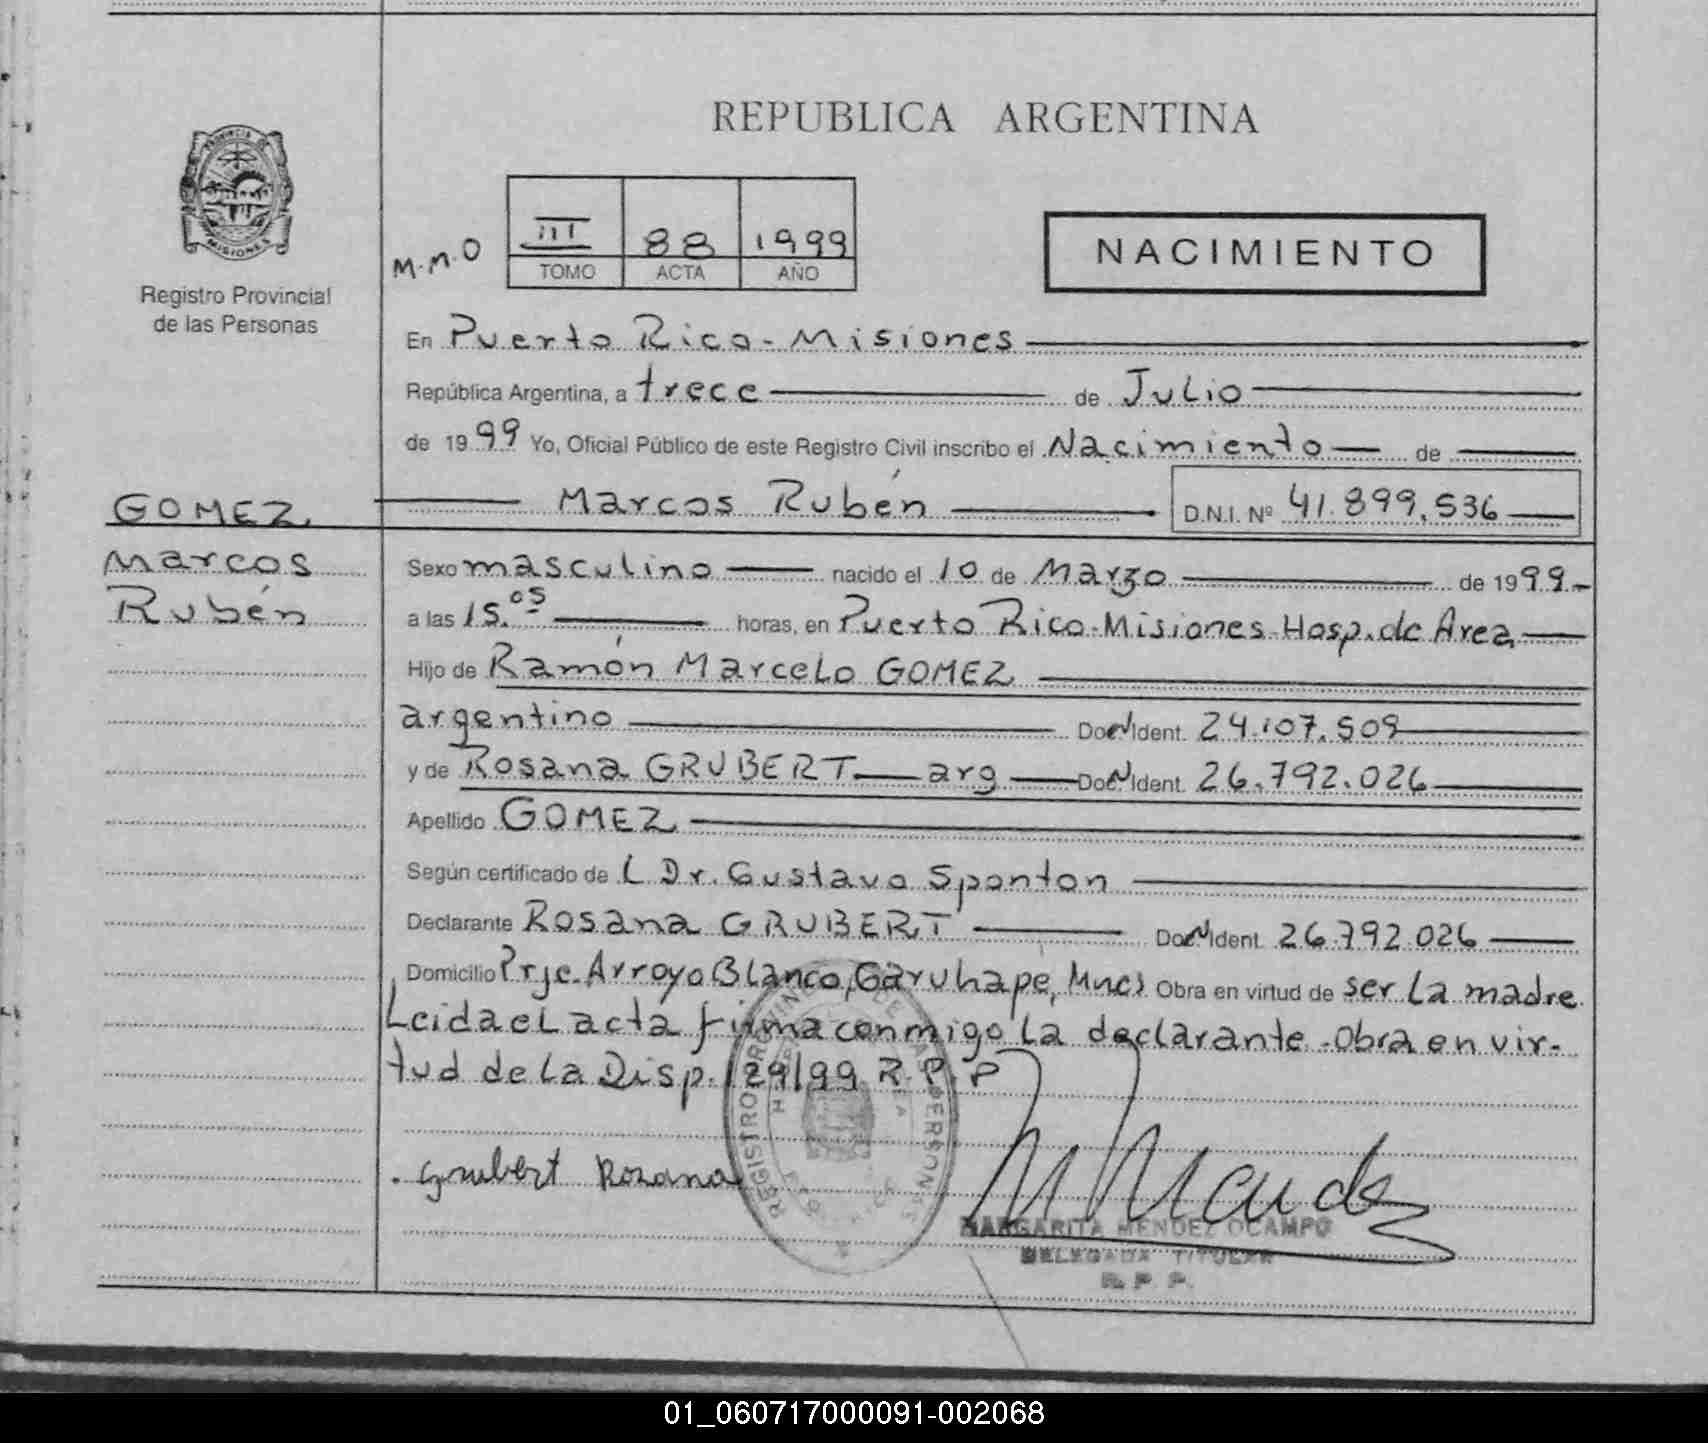 REPUBLICA ARGENTINA
PROVINCIA DE
MISIONES
Registro Provincial
de las Personas
M.M.O
III 88 1999
TOMO ACTA AÑO
NACIMIENTO
En Puerto Rico - Misiones
República Argentina, a trece de Julio
de 1999 Yo, Oficial Público de este Registro Civil inscribo el Nacimiento de
GOMEZ Marcos Rubén D.N.I. Nº 41.899.536
Marcos Sexo masculino nacido el 10 de Marzo de 1999.-
Rubén a las 15.05 horas, en Puerto Rico-Misiones-Hosp. de Area
Hijo de Ramón Marcelo GOMEZ
argentino Doc. Ident. 24.107.509
y de Rosana GRUBERT arg Doc. Ident. 26.792.026
Apellido GOMEZ
Según certificado de L Dr. Gustavo Sponton
Declarante Rosana GRUBERT Doc. Ident. 26.792.026
Domicilio Prje. Arroyo Blanco, Garuhape, Mnes Obra en virtud de ser la madre
Leida el acta firma conmigo la declarante - Obra en vir-
tud de la Disp. 129/99 R.P.P
REGISTRO PROVINCIAL DE LAS PERSONAS
Grubert Rosana
MARGARITA MENDEZ OCAMPO
DELEGADA TITULAR
R. P. P.
01_060717000091-002068